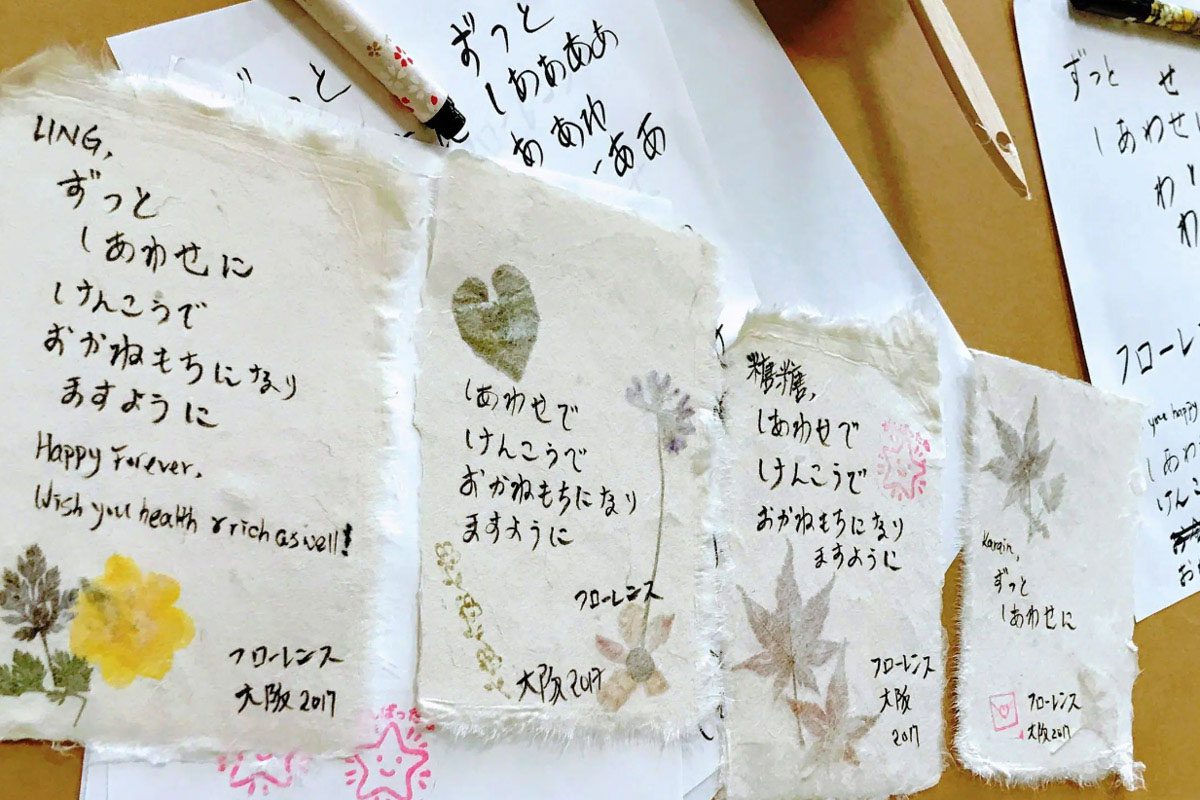 LING,
ずっと
しあわせに
けんこうで
おかねもちになり
ますように
Happy Forever,
Wish you health & rich as well!
フローレンス
大阪 2017
しあわせで
けんこうで
おかねもちになり
ますように
フローレンス
大阪 2017
糖糖,
しあわせで
けんこうで
おかねもちになり
ますように
フローレンス
大阪
2017
ずっと
しあわせに
フローレンス
大阪 2017
ずっと
しあああぁ
ああわ
ずっと
ずっと せ
しあわせ
わ
わ
フローレ
you happy
しあわ
けんこ
お